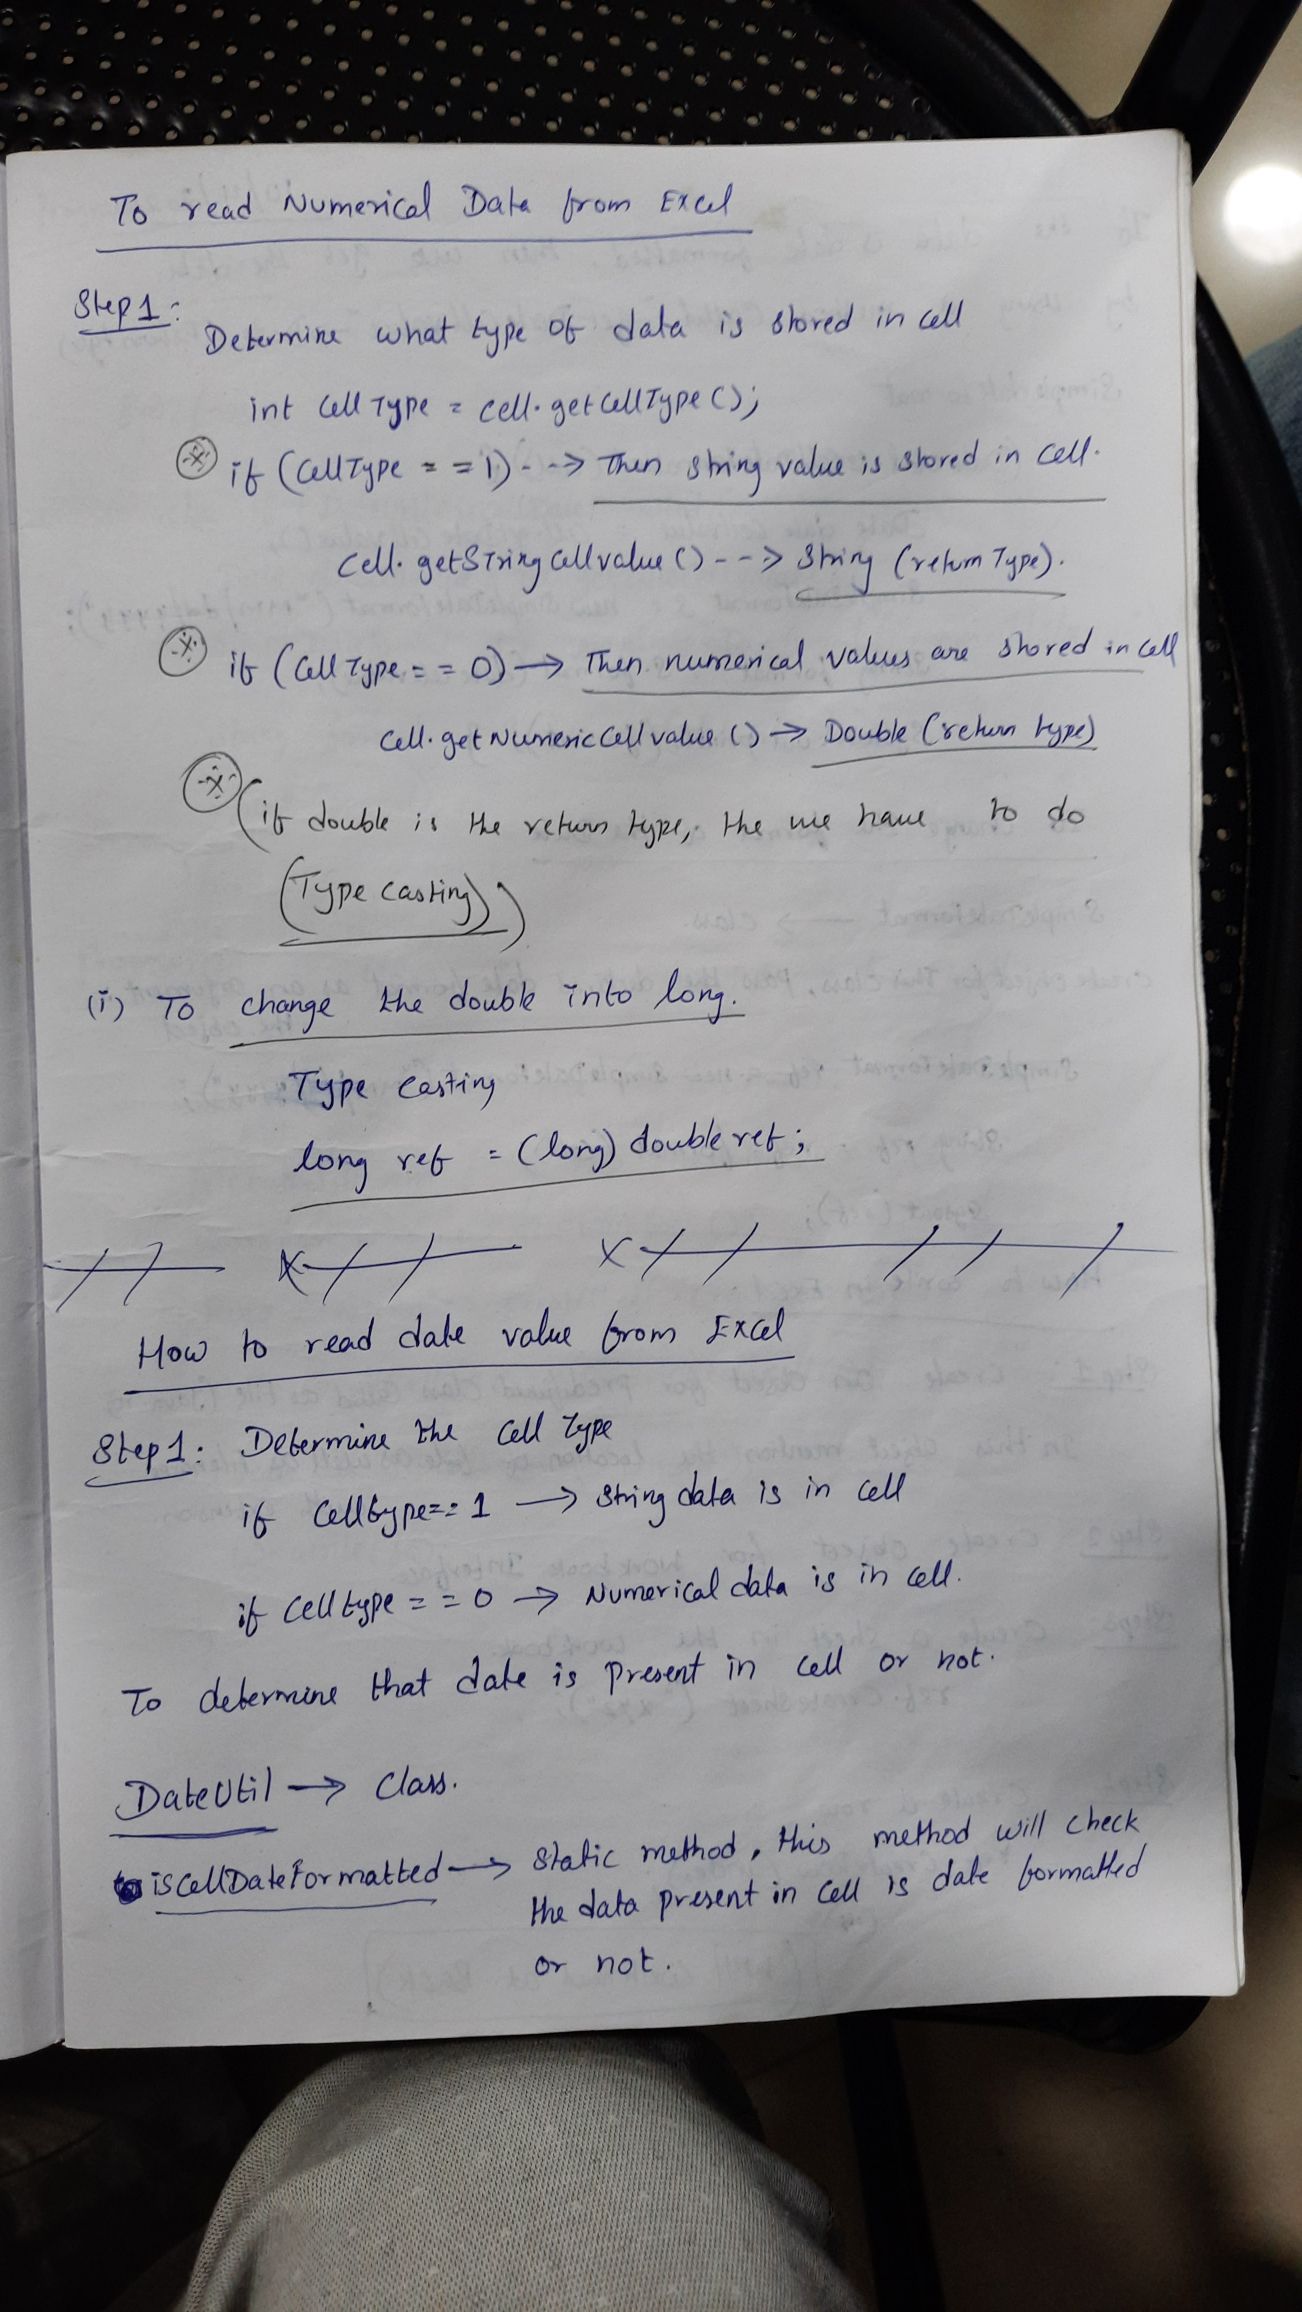 To read Numerical Data from Excel
Step 1:
Determine what type of data is stored in cell
int cell Type = cell.getCellType();
if (CellType == 1) --> Then string value is stored in cell.
cell.getStringCellvalue() --> String (return Type).
if (Cell Type == 0) → Then numerical values are stored in cell
cell.getNumericCellvalue () → Double (return type)
(if double is the return type, the we have to do
(Type casting))
(i) To change the double into long.
Type casting
long ref = (long) double ref;
How to read date value from Excel
Step 1: Determine the cell Type
if Celltype==1 → String data is in cell
if Celltype == 0 → Numerical data is in cell.
To determine that date is present in cell or not.
DateUtil → Class.
isCellDateFormatted → Static method, this method will check
the data present in cell is date formatted
or not.